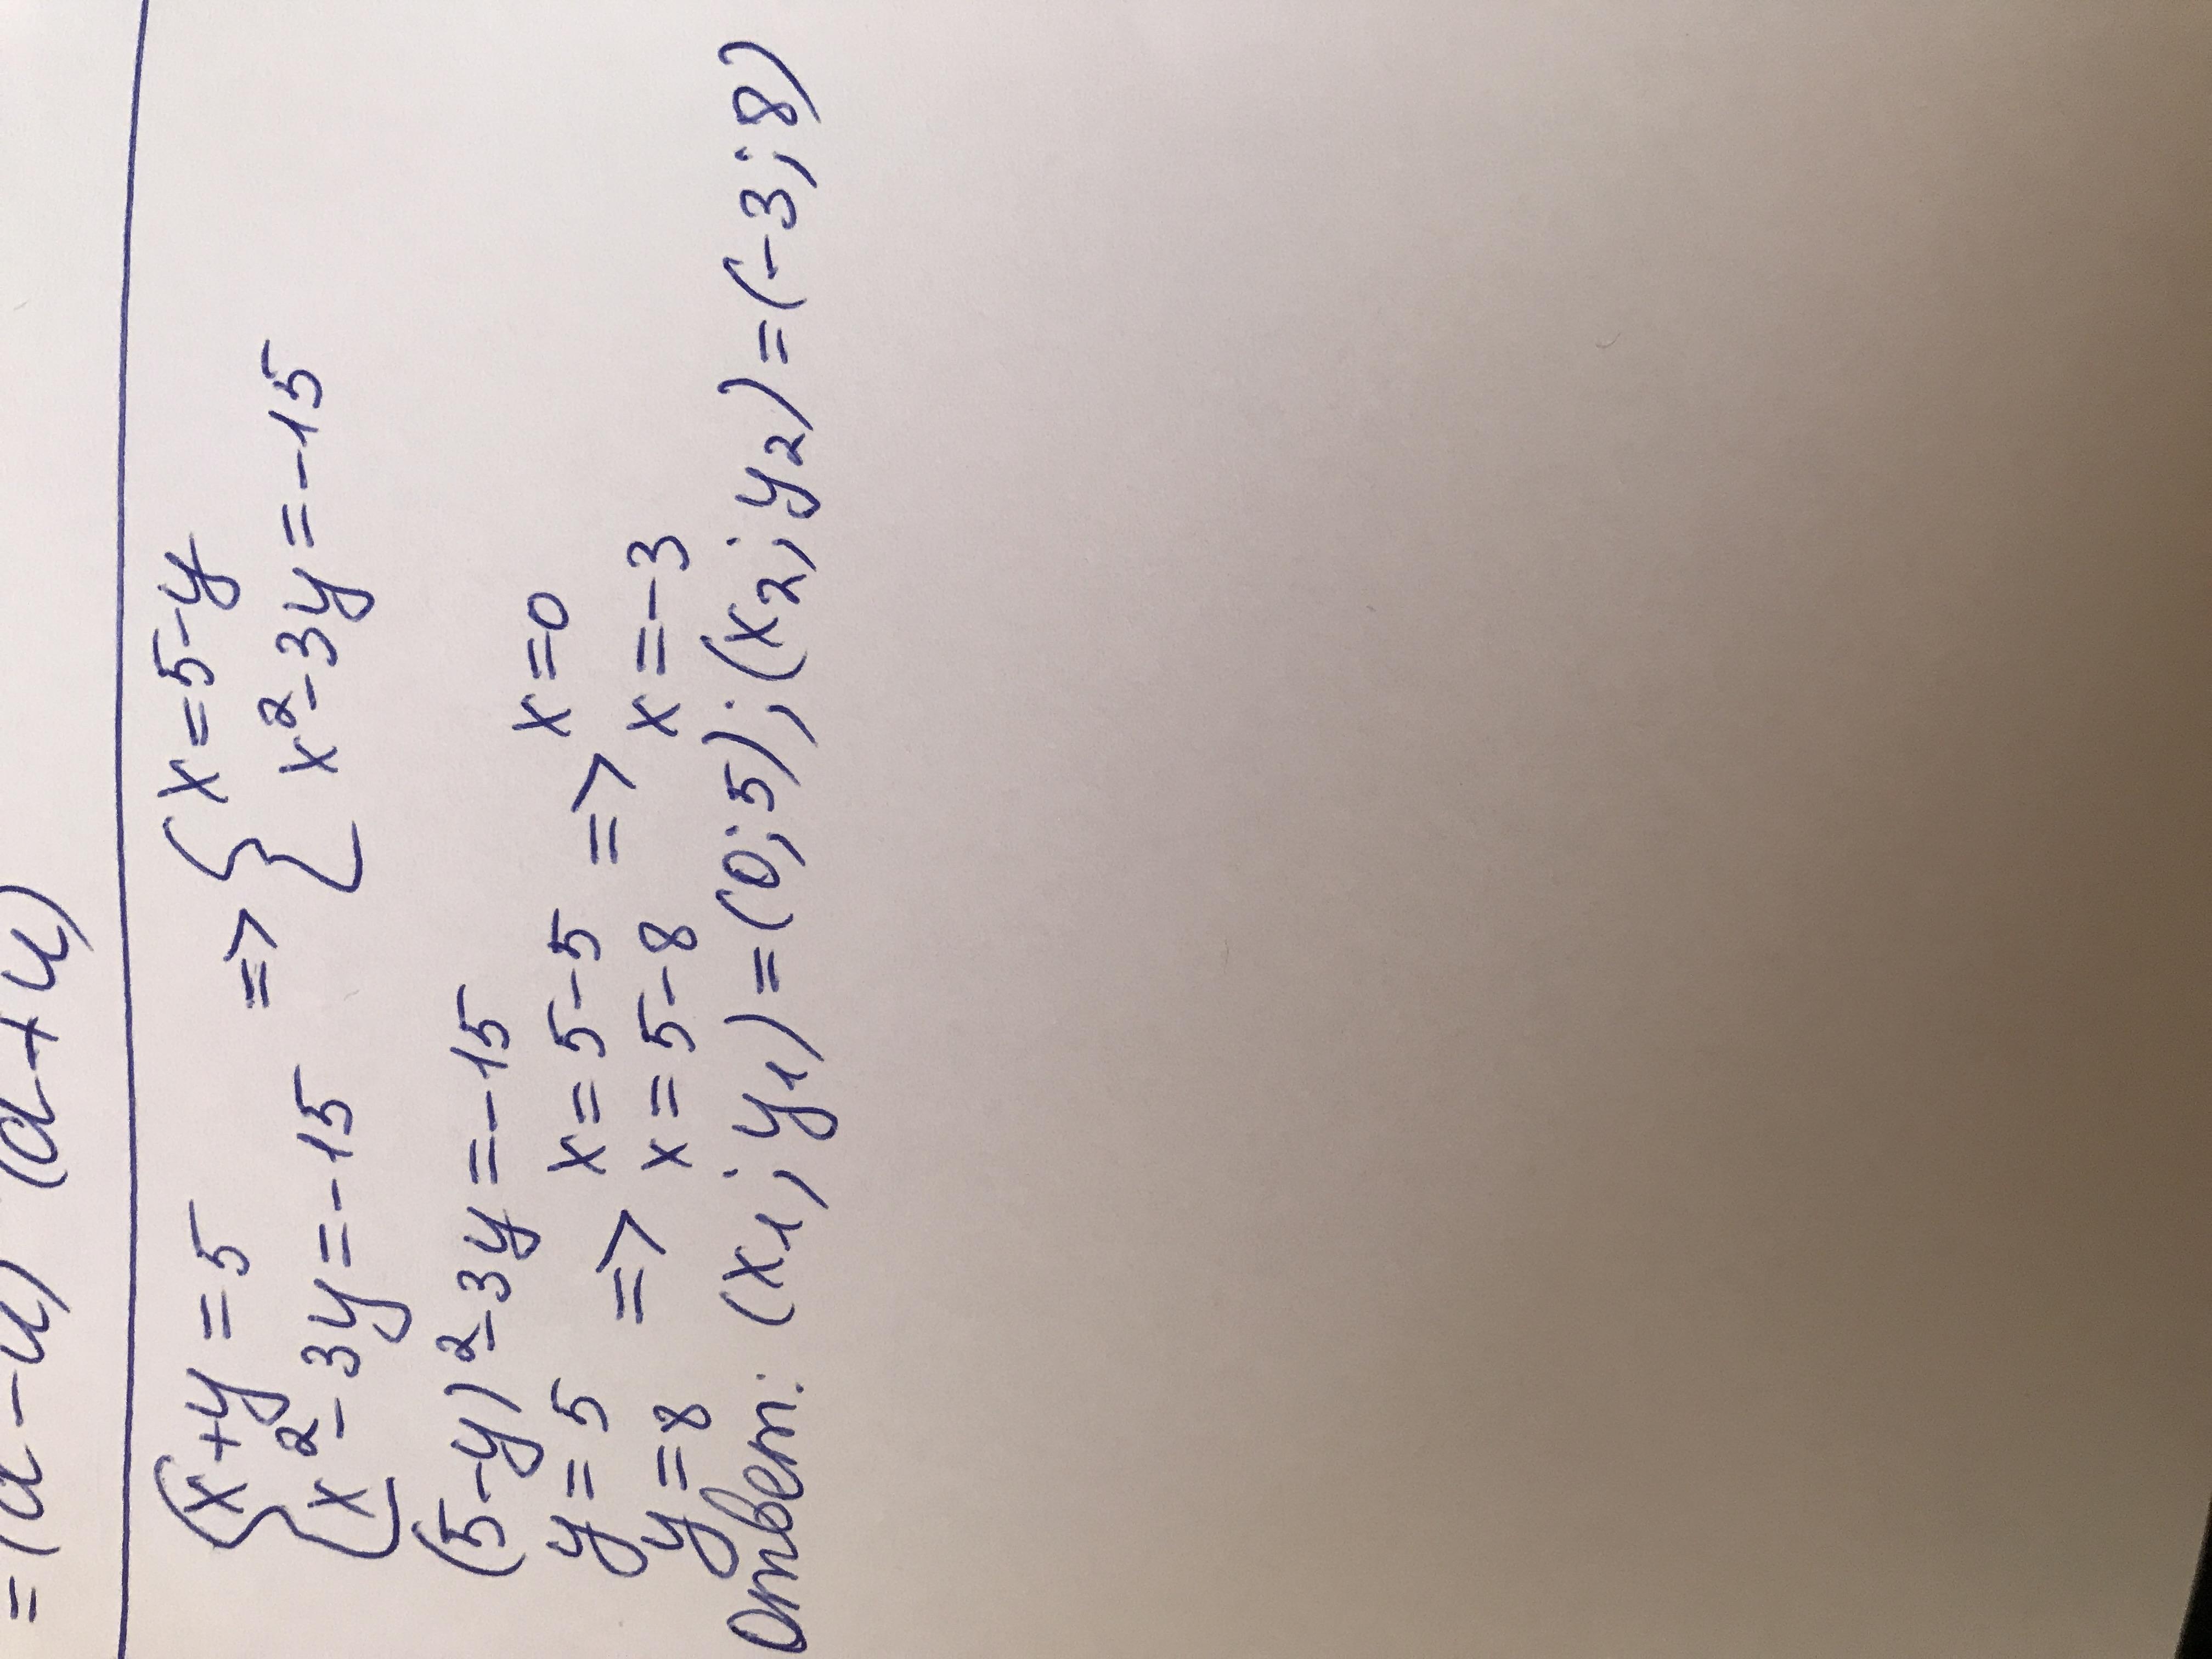 =(a-u) (a+u)
{x+y=5 => {x=5-y
{x²-3y=-15 {x²-3y=-15
(5-y)²-3y=-15
y=5 => x=5-5 => x=0
y=8 x=5-8 x=-3
Ответ: (x₁; y₁)=(0;5); (x₂; y₂)=(-3; 8)